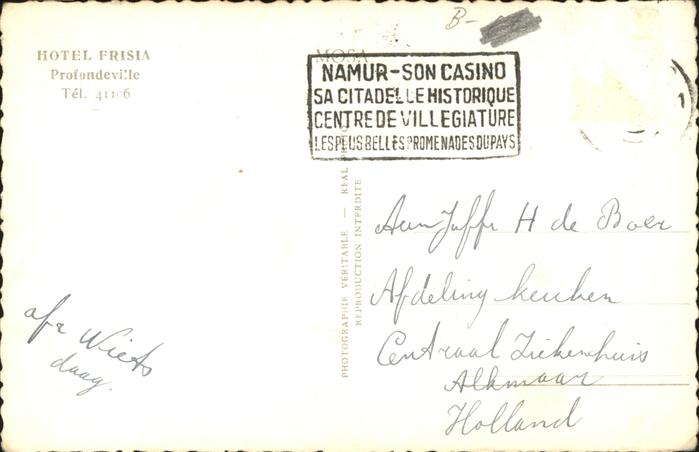 B-
HOTEL FRISIA
Profondeville
Tél. 41106
MOSA
NAMUR-SON CASINO
SA CITADELLE HISTORIQUE
CENTRE DE VILLEGIATURE
LES PLUS BELLES PROMENADES DU PAYS
PHOTOGRAPHIE VÉRITABLE — REAL
REPRODUCTION INTERDITE
Aan Juffr H de Boer
Afdeling keuken
Centraal Ziekenhuis
Alkmaar
Holland
afz Wiets
daag.